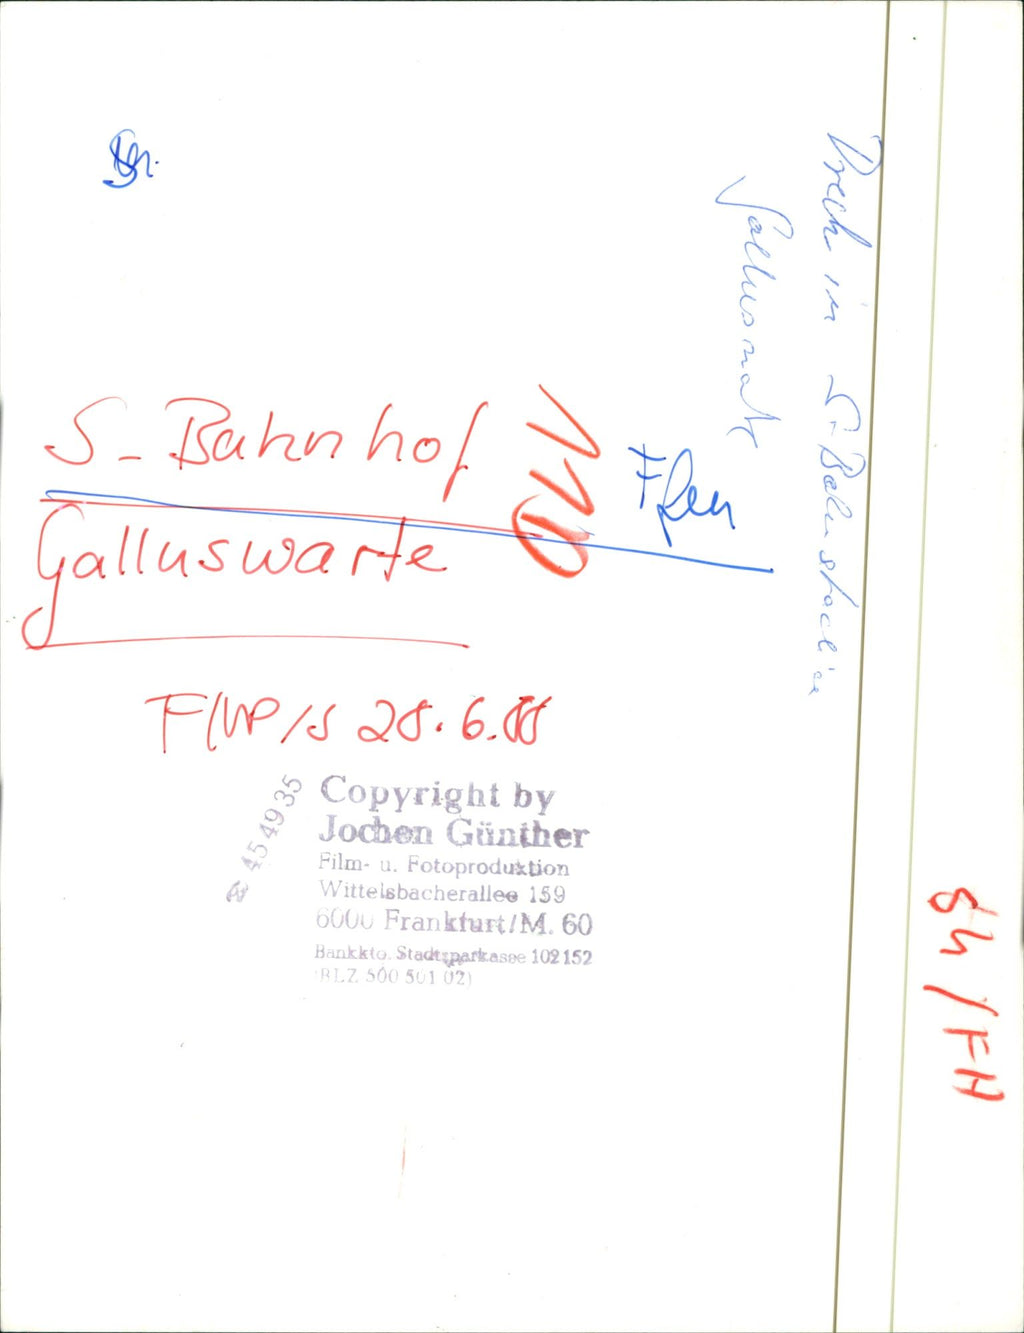 Dreck in S-Bahnstation
Galluswarte
S-Bahnhof
Galluswarte
F/NP/S 28.6.88
454935
Copyright by
Jochen Günther
Film- u. Fotoproduktion
Wittelsbacherallee 159
6000 Frankfurt/M. 60
Bankkto. Stadtsparkasse 102152
(BLZ 500 501 02)
84/FH